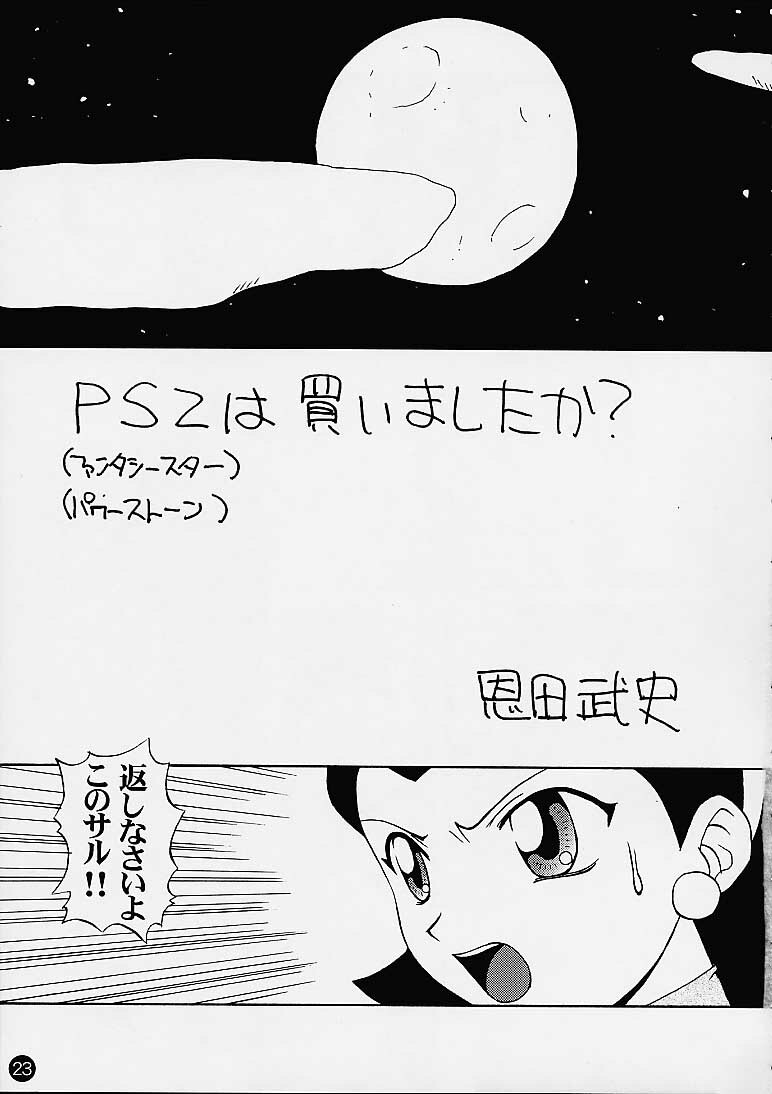 PS2は買いましたか?
(ファンタシースター)
(パワーストーン)
恩田武史
返しなさいよ
このサル!!
23